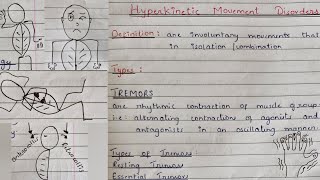 Hyperkinetic Movement Disorders
Definition: are involuntary movements that
in isolation/combination
Types:
TREMORS
are rhythmic contraction of muscle groups
i.e. alternating contraction of agonists and
antagonists in an oscillating manner
Types of Tremors
Resting Tremor
Essential Tremor
gy